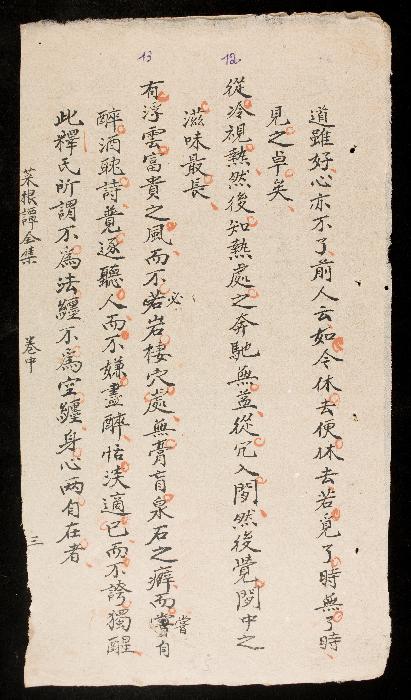 12
13
道雖好心亦不了前人云如今休去便休去若覓了時無了時
見之卓矣
從冷視熱然後知熱處之奔馳無益從冗入閒然後覺閒中之
滋味最長
有浮雲富貴之風而不必岩棲穴處無膏肓泉石之癖而嘗自
醉酒耽詩競逐聽人而不嫌盡醉恬淡適已而不誇獨醒
此釋氏所謂不為法纏不為空纏身心兩自在者
菜根譚全集 卷中 三